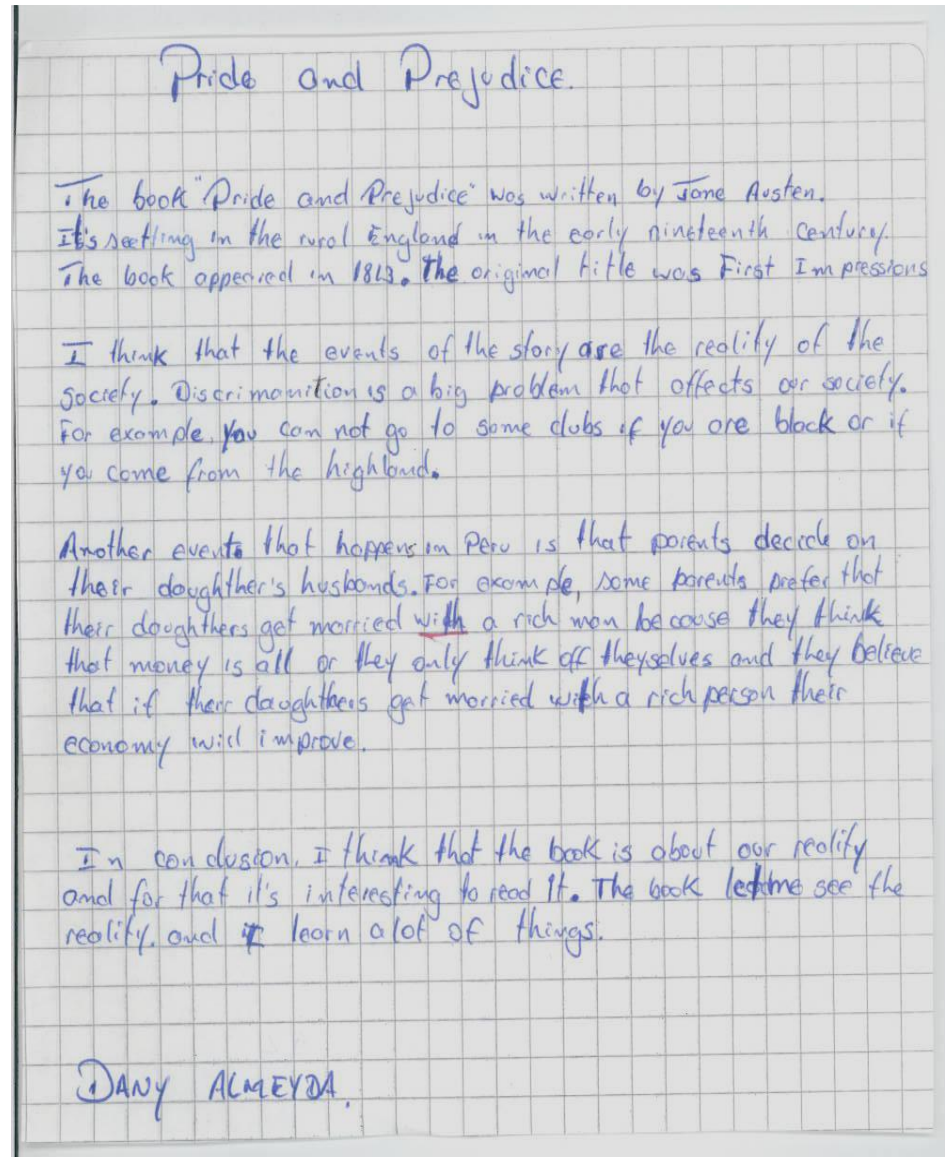 Pride and Prejudice.
The book "Pride and Prejudice" was written by Jane Austen.
It's seetling in the rural England in the early nineteenth century.
The book appeared in 1813. The original title was First Impressions
I think that the events of the story are the reality of the
society. Discrimanition is a big problem that affects our society.
For example, you can not go to some clubs if you are black or if
you come from the highland.
Another events that happens in Peru is that parents decide on
their doughther's husbands. For example, some parents prefer that
their doughthers get married with a rich man because they think
that money is all or they only think off theyselves and they believe
that if their daughthers get married with a rich person their
economy will improve.
In conclusion, I think that the book is about our reality
and for that it's interesting to read it. The book let me see the
reality. and I learn alot of things.
DANY ALMEYDA.